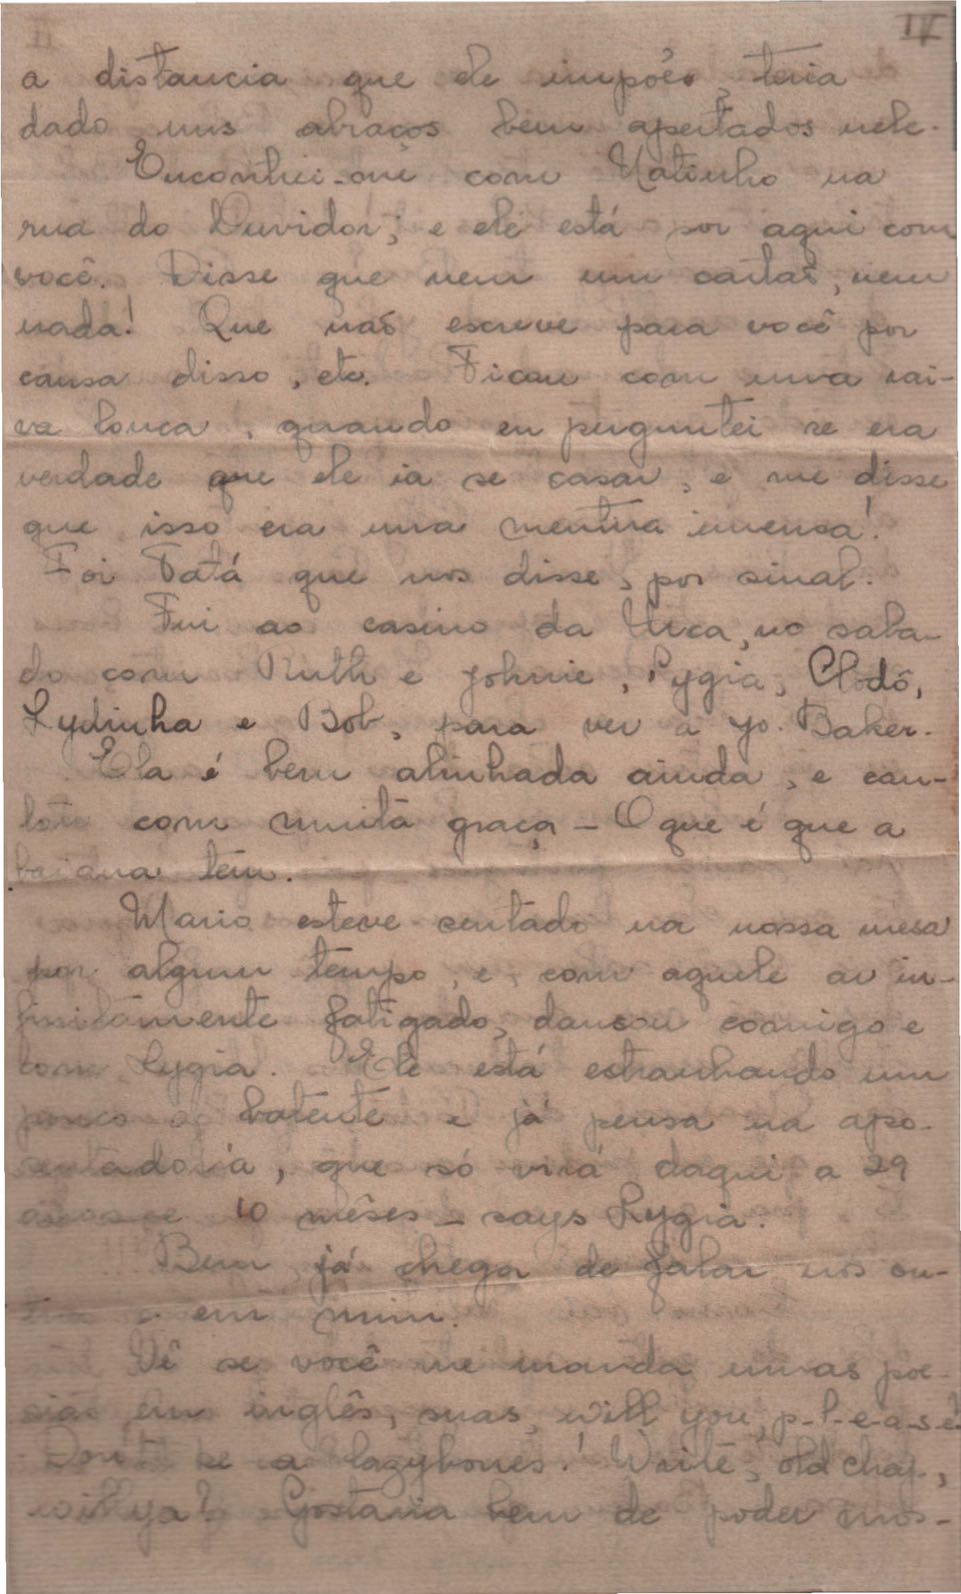 IV
a distancia que ele impóes, teria
dado uns abraços bem apertados nele.
Encontrei-me com Natinho na
rua do Ouvidor, e ele está por aqui com
você. Disse que nem um cartão, nem
nada! Que não escreve para você por
causa disso, etc. Ficou com uma rai-
va louca, quando eu perguntei se era
verdade que ele ia se casar, e me disse
que isso era uma mentira imensa!
Foi Tatá que nos disse, por sinal.
Fui ao casino da Urca, no saba-
do com Ruth e Johnie, Lygia, Clodô,
Lydinha e Bob, para ver a Jo. Baker.
Ela é bem alinhada ainda, e can-
tou com muita graça - O que é que a
baiana tem.
Mario esteve sentado na nossa mesa
por algum tempo, e, com aquele ar in-
finitamente fatigado, dansou comigo e
com Lygia. Ele está estranhando um
pouco o batente e já pensa na apo-
sentadoria, que só virá daqui a 29
anos e 10 mêses - says Lygia.
Bem já chega de falar nos ou-
tros e em mim.
Vê se você me manda umas poe-
sias em inglês, suas, will you, p-l-e-a-s-e!
Don't be a lazybones! Write, old chap,
will ya? Gostaria bem de poder mos-